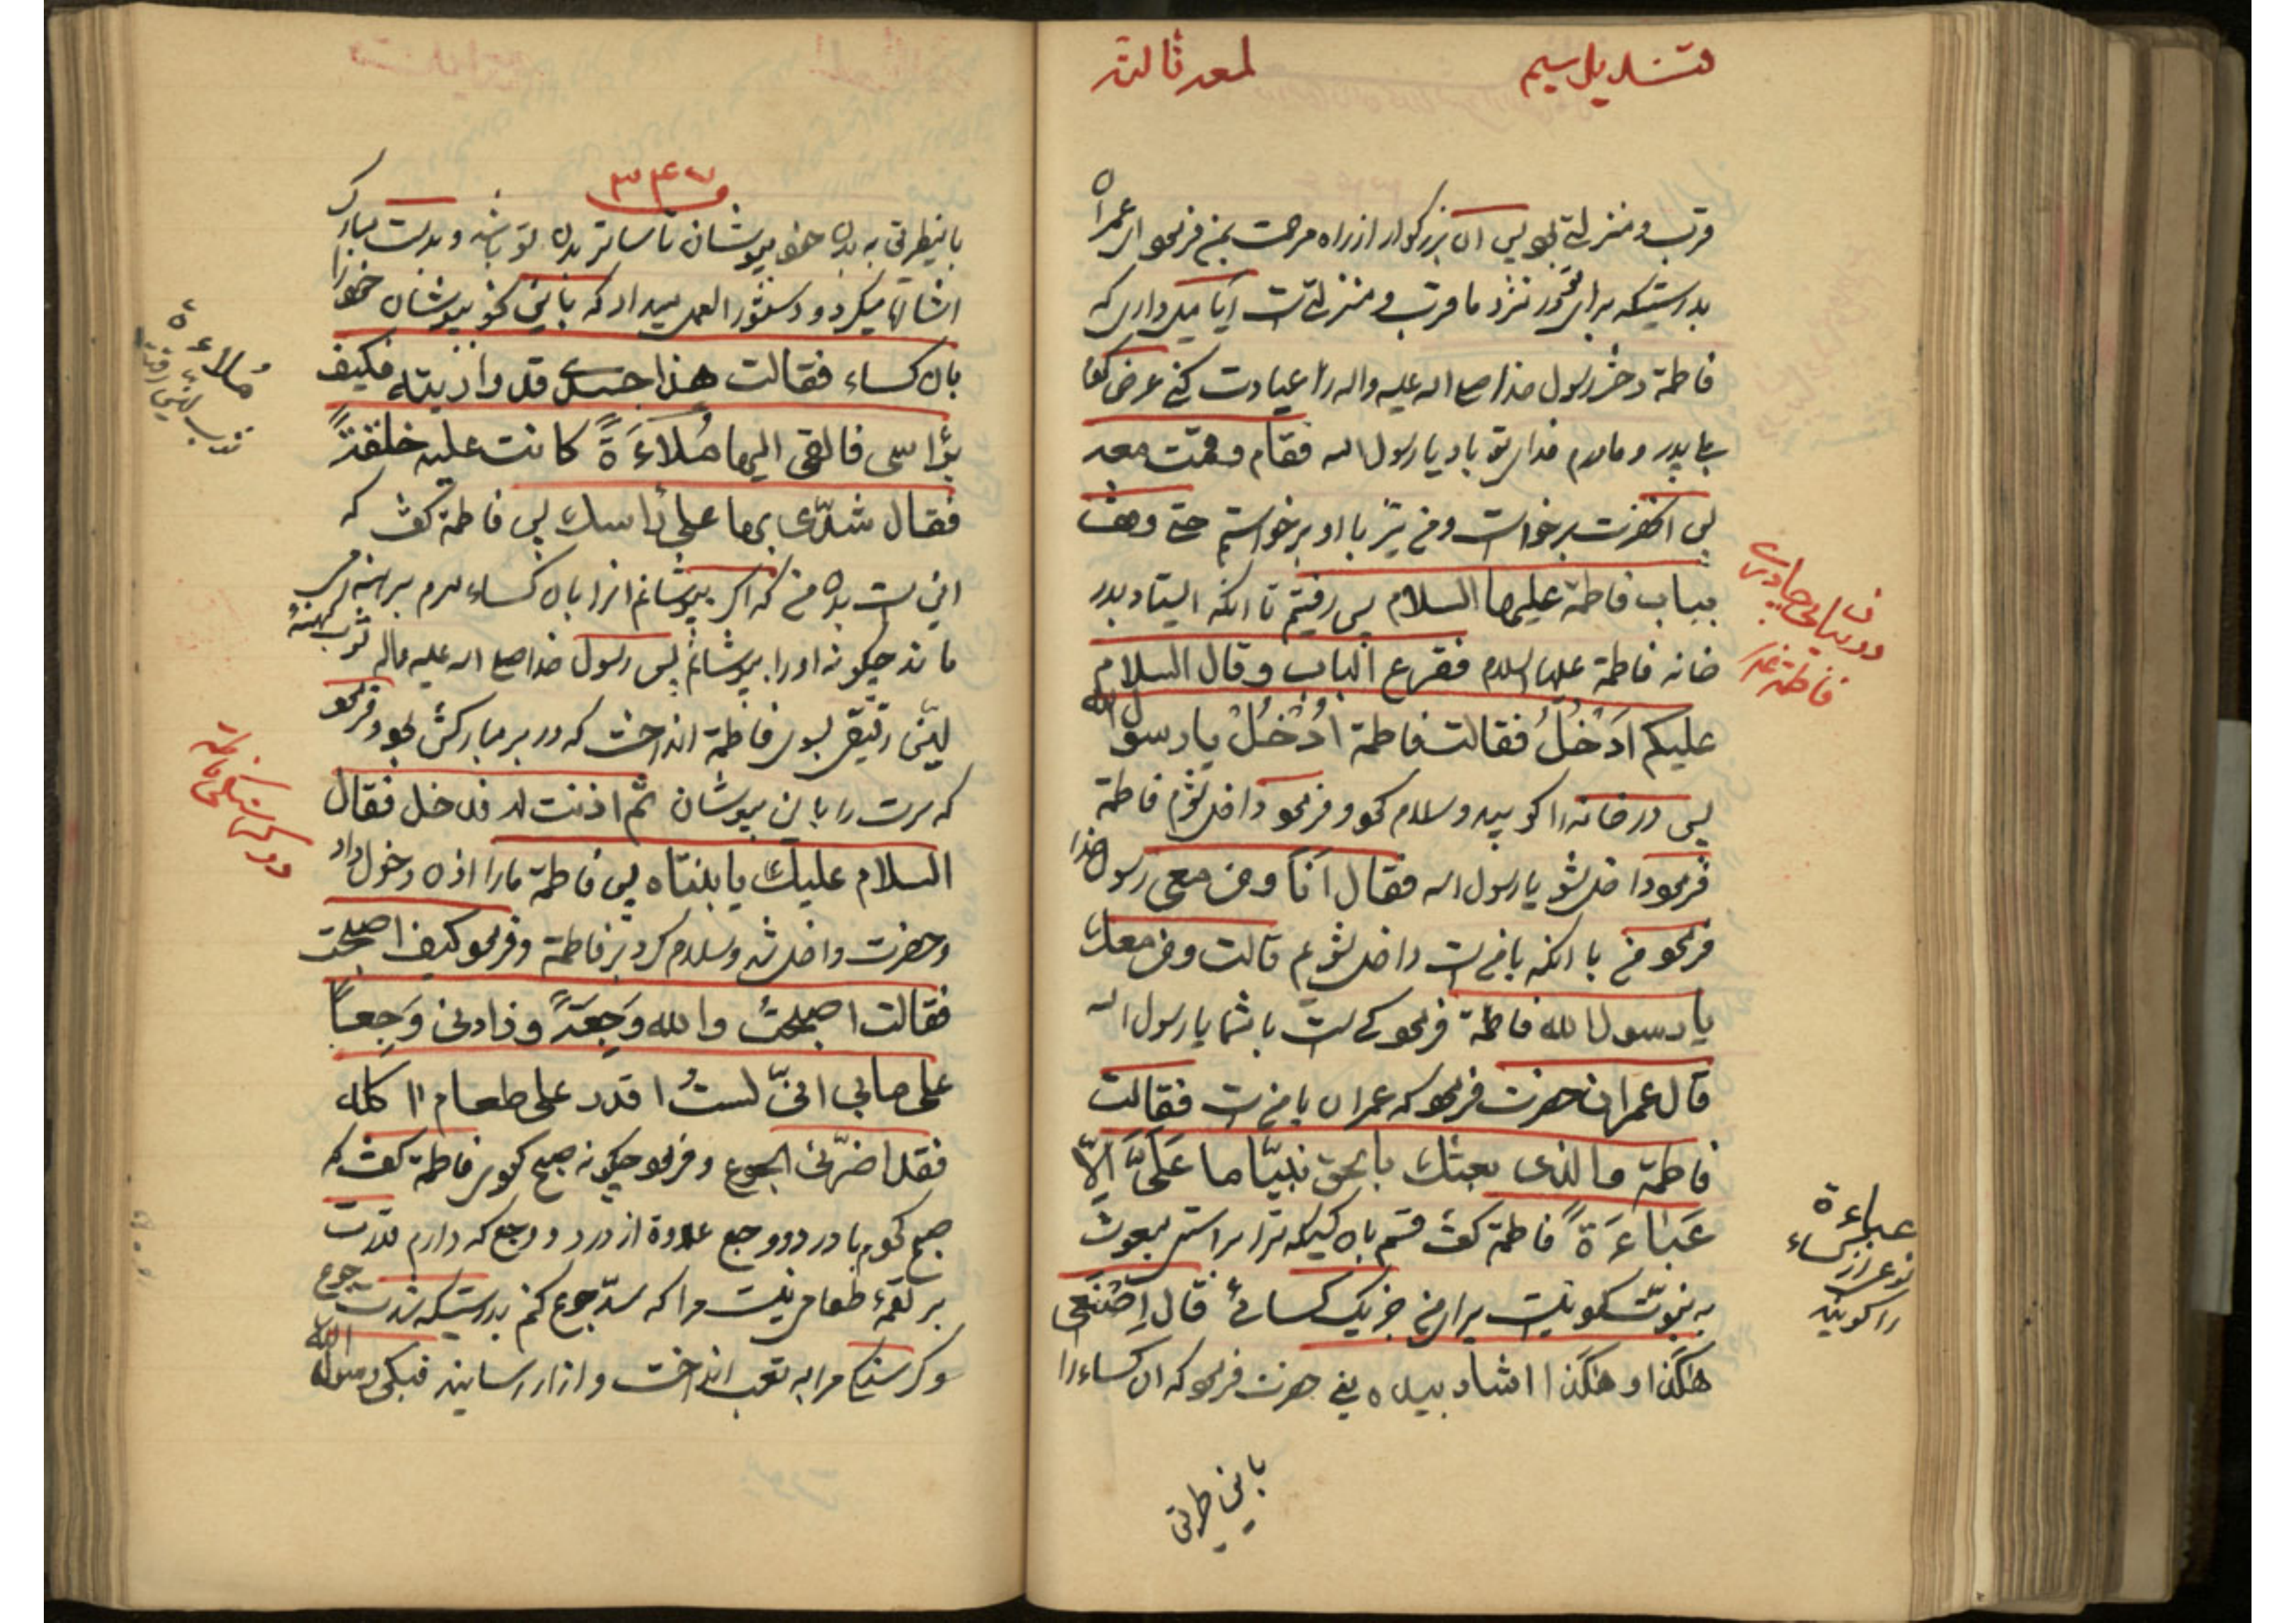 قندیل سیم
لمعه ثالثه
قرب و منزلتی بود پس آن بزرگوار از راه مرحمت بمن فرمود ای عمران
بدرستیکه برای تو در نزد ما قرب و منزلتی است آیا میل داری که
فاطمة دختر رسول خدا صلی الله علیه واله را عیادت کنی عرض کردم
بلی پدر و مادرم فدای تو باد یا رسول الله فقام وقمت معه
پس آنحضرت برخواست و من نیز با او برخواستم حتی وقف
بباب فاطمة علیها السلام پس رفتیم تا آنکه ایستاد بدر
خانه فاطمة علیها السلام فقرع الباب وقال السلام
علیکم اَدْخُلُ فقالت فاطمة اُدْخُلْ یا رسول الله
پس در خانه را کوبید و سلام نمود و فرمود داخل شوم فاطمة
فرمود داخل شو یا رسول الله فقال اَنَا ومن معی رسول خدا
فرمود من با آنکه با من است داخل شویم قالت ومن معك
یا رسول الله فاطمة فرمود کی است با شما یا رسول الله
قال عمران حضرت فرمود که عمران با من است فقالت
فاطمة والذی بعثك بالحق نبیّا ما عَلَیَّ اِلّا
عَبَاءَةً فاطمة گفت قسم بآن کسیکه ترا براستی مبعوث
به نبوّت نمود نیست برای من جز یک کسائی قال اِصْنَعی
هٰکذا و هٰکذا اشاد بیده یعنی حضرت فرمود که آن کساء را
باین طریق
عباءة
نوعی از کساء
را گویند
فاطمة
۳۴۷
باینطریق به بدن خود بپوشان تا ساتر بدن تو باشد و بدست مبارک
اشاره میکرد و دستور العمل میداد که باین نحو بپوشان خود را
بآن کساء فقالت هذا جسدی قد واریته فکیف
برأسی فالقی الیها مُلاءَةً کانت علیه خلقةً
فقال شدّی بها علی رأسك پس فاطمة گفت که
این است بدن من که اگر بپوشانم آنرا بآن کساء سرم برهنه می
ماند چگونه او را بپوشانم پس رسول خدا صلی الله علیه واله ثوب کهنهٔ
لیّن رقیق بسوی فاطمة انداخت که در بر مبارکش بود و فرمود
که سرت را باین بپوشان ثم اذنت له فدخل فقال
السلام علیك یا بنتاه پس فاطمة ما را اذن دخول داد
و حضرت داخل شد و سلام کرد بر فاطمة و فرمود کیف اصبحت
فقالت اصبحتُ والله وَجِعَةً وزادنی وَجَعاً
علی مابی انّی لستُ اقدر علی طعام اٰکله
فقد اضرّنی الجوع و فرمود چگونه صبح نمودی فاطمة گفت که
صبح نمودم با درد و وجع علاوة از درد و وجع که دارم قدرت
بر لقمهٔ طعامی نیست مرا که سدّ جوع کنم بدرستیکه شدت جوع
و گرسنگی مرا به تعب انداخت و آزار رسانید فبکی رسول الله
مُلاءة